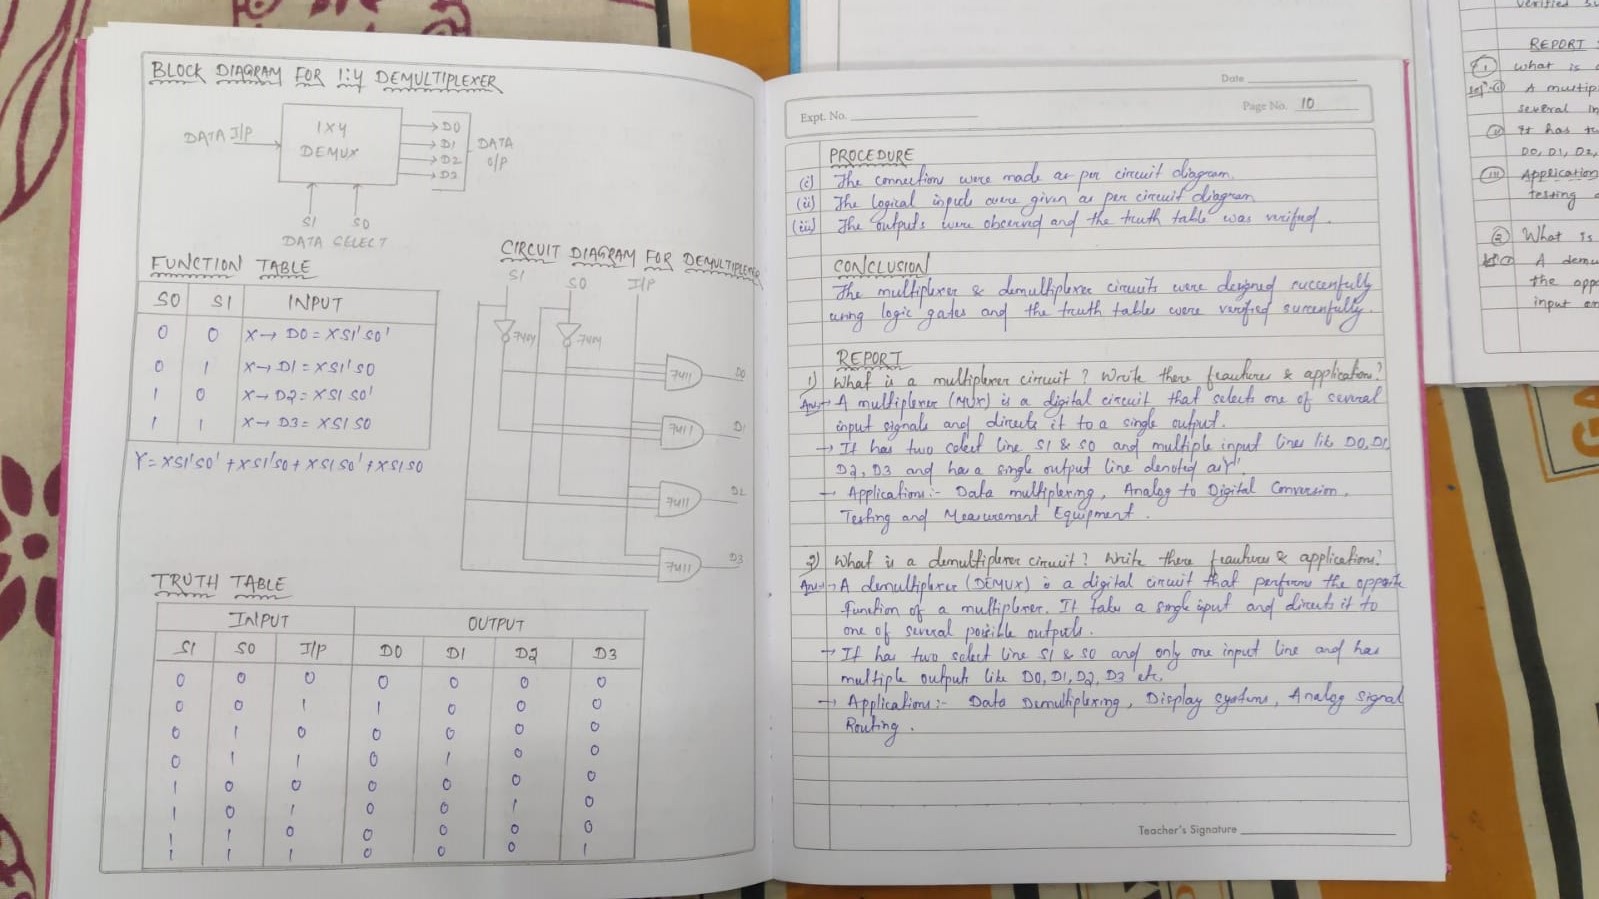 BLOCK DIAGRAM FOR 1:4 DEMULTIPLEXER
DATA I/P
1X4
DEMUX
D0
D1
D2
D3
DATA
O/P
S1 S0
DATA SELECT
FUNCTION TABLE
S0 S1 INPUT
0 0 X→ D0 = XS1'S0'
0 1 X→ D1 = XS1'S0
1 0 X→ D2 = XS1 S0'
1 1 X→ D3 = XS1 S0
Y = XS1'S0' + XS1'S0 + XS1 S0' + XS1S0
CIRCUIT DIAGRAM FOR DEMULTIPLEXER
S1 S0 I/P
7404 7404
7411 D0
7411 D1
7411 D2
7411 D3
TRUTH TABLE
INPUT OUTPUT
S1 S0 I/P D0 D1 D2 D3
0 0 0 0 0 0 0
0 0 1 1 0 0 0
0 1 0 0 0 0 0
0 1 1 0 1 0 0
1 0 0 0 0 0 0
1 0 1 0 0 1 0
1 1 0 0 0 0 0
1 1 1 0 0 0 1
Date
Expt. No.
Page No. 10
PROCEDURE
(i) The connection were made as per circuit diagram.
(ii) The logical inputs were given as per circuit diagram
(iii) The outputs were observed and the truth table was verified.
CONCLUSION
The multiplexer & demultiplexer circuits were designed successfully
using logic gates and the truth tables were verified successfully.
REPORT
1) What is a multiplexer circuit? Write there feautures & application?
Ans:- → A multiplexer (MUX) is a digital circuit that selects one of several
input signals and directs it to a single output.
→ It has two select line S1 & S0 and multiple input lines like D0, D1,
D2, D3 and has a single output line denoted as 'Y'.
→ Applications:- Data multiplexing, Analog to Digital Conversion,
Testing and Measurement Equipment.
2) What is a demultiplexer circuit? Write there feautures & applications?
Ans:- → A demultiplexer (DEMUX) is a digital circuit that performs the opposite
function of a multiplexer. It takes a single input and directs it to
one of several possible outputs.
→ It has two select line S1 & S0 and only one input line and has
multiple outputs like D0, D1, D2, D3 etc.
→ Applications:- Data Demultiplexing, Display systems, Analog Signal
Routing.
Teacher's Signature
verified
REPORT
1 What is
A multip
several in
It has tw
D0, D1, D2,
(iii) Application
testing
2 What is
A demu
the opp
input on